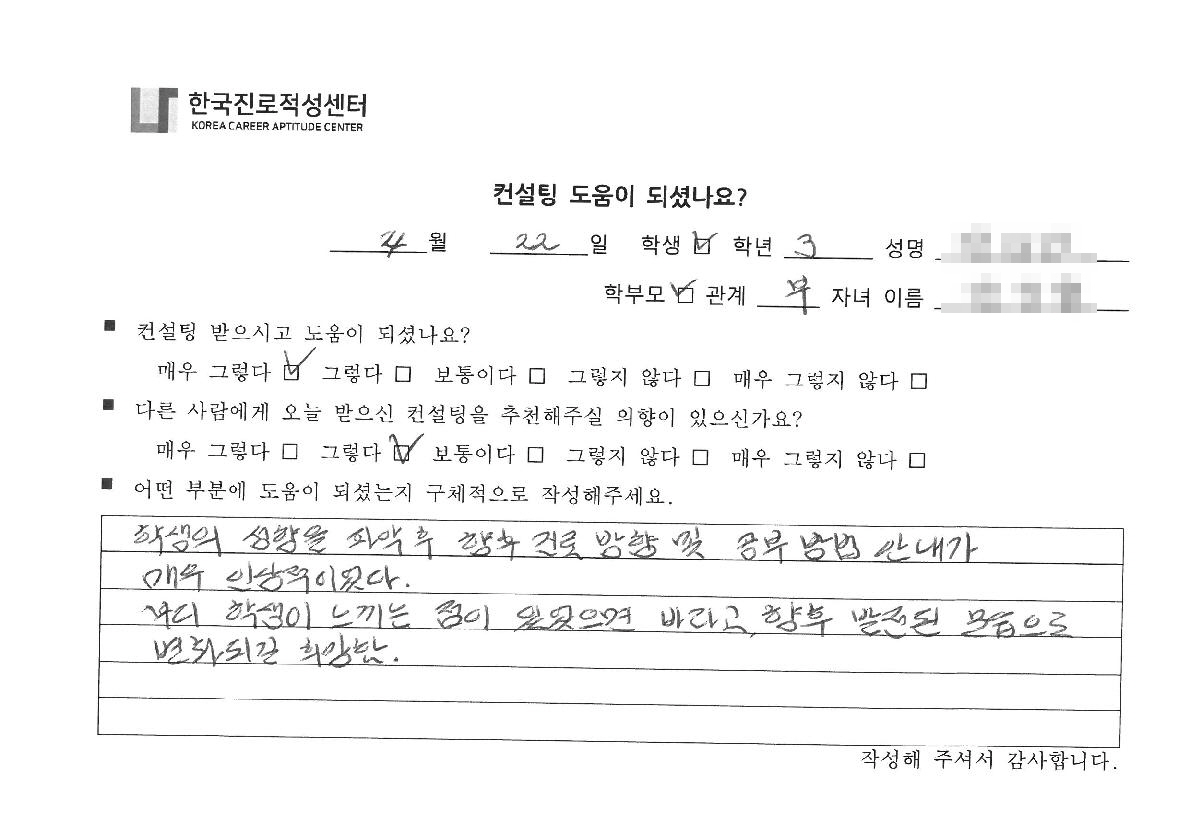 한국진로적성센터
KOREA CAREER APTITUDE CENTER
컨설팅 도움이 되셨나요?
4 월 22 일 학생 ☑ 학년 3 성명
학부모 ☑ 관계 부 자녀 이름
■ 컨설팅 받으시고 도움이 되셨나요?
매우 그렇다 ☑ 그렇다 □ 보통이다 □ 그렇지 않다 □ 매우 그렇지 않다 □
■ 다른 사람에게 오늘 받으신 컨설팅을 추천해주실 의향이 있으신가요?
매우 그렇다 □ 그렇다 ☑ 보통이다 □ 그렇지 않다 □ 매우 그렇지 않다 □
■ 어떤 부분에 도움이 되셨는지 구체적으로 작성해주세요.
학생의 성향을 파악 후 향후 진로 방향 및 공부 방법 안내가
매우 인상적이었다.
부디 학생이 느끼는 점이 있었으면 바라고, 향후 발전된 모습으로
변화되길 희망함.
작성해 주셔서 감사합니다.